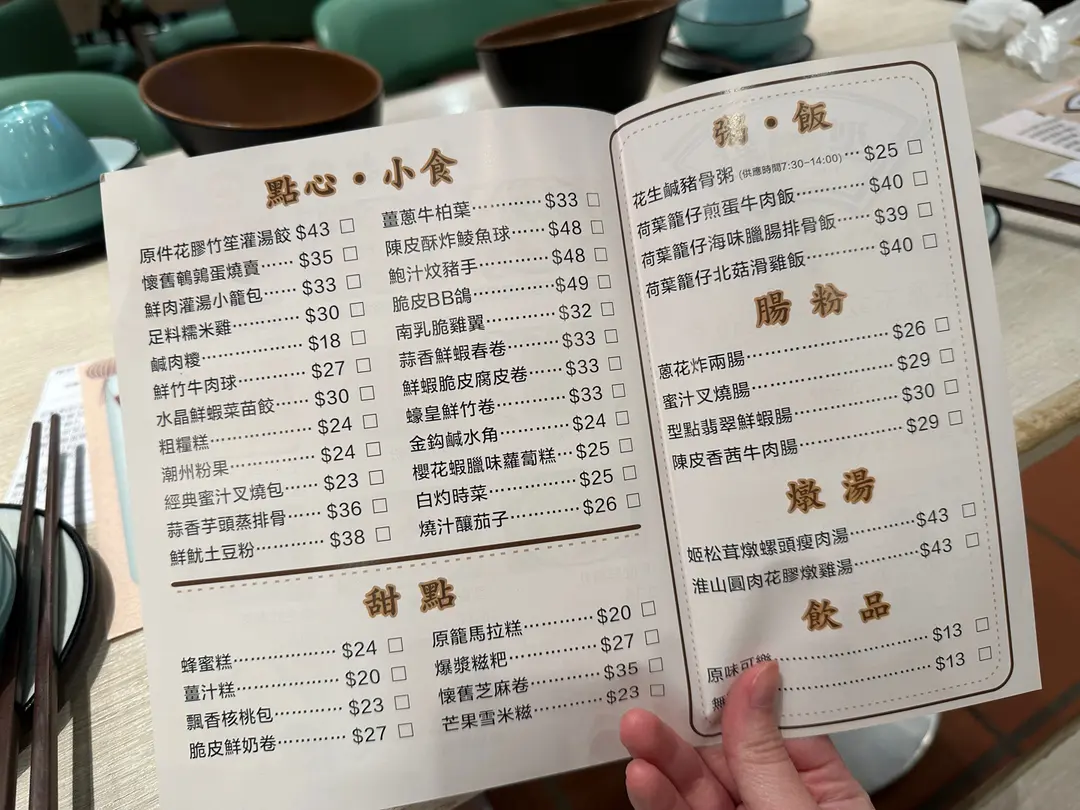 點心•小食
原件花膠竹笙灌湯餃 $43 □
懷舊鵪鶉蛋燒賣……$35 □
鮮肉灌湯小籠包……$33 □
足料糯米雞…………$30 □
鹹肉糭………………$18 □
鮮竹牛肉球…………$27 □
水晶鮮蝦菜苗餃……$30 □
粗糧糕………………$24 □
潮州粉果……………$24 □
經典蜜汁叉燒包……$23 □
蒜香芋頭蒸排骨……$36 □
鮮魷土豆粉…………$38 □
薑蔥牛柏葉…………$33 □
陳皮酥炸鯪魚球……$48 □
鮑汁炆豬手…………$48 □
脆皮BB鴿……………$49 □
南乳脆雞翼…………$32 □
蒜香鮮蝦春卷………$33 □
鮮蝦脆皮腐皮卷……$33 □
蠔皇鮮竹卷…………$33 □
金鈎鹹水角…………$24 □
櫻花蝦臘味蘿蔔糕…$25 □
白灼時菜……………$25 □
燒汁釀茄子…………$26 □
甜點
蜂蜜糕………………$24 □
薑汁糕………………$20 □
飄香核桃包…………$23 □
脆皮鮮奶卷…………$27 □
原籠馬拉糕…………$20 □
爆漿糍粑……………$27 □
懷舊芝麻卷…………$35 □
芒果雪米糍…………$23 □
粥•飯
花生鹹豬骨粥 (供應時間7:30-14:00)…$25 □
荷葉籠仔煎蛋牛肉飯…………$40 □
荷葉籠仔海味臘腸排骨飯……$39 □
荷葉籠仔北菇滑雞飯…………$40 □
腸粉
蔥花炸兩腸…………$26 □
蜜汁叉燒腸…………$29 □
型點翡翠鮮蝦腸……$30 □
陳皮香茜牛肉腸……$29 □
燉湯
姬松茸燉螺頭瘦肉湯……$43 □
淮山圓肉花膠燉雞湯……$43 □
飲品
原味可樂……………$13 □
無……………$13 □